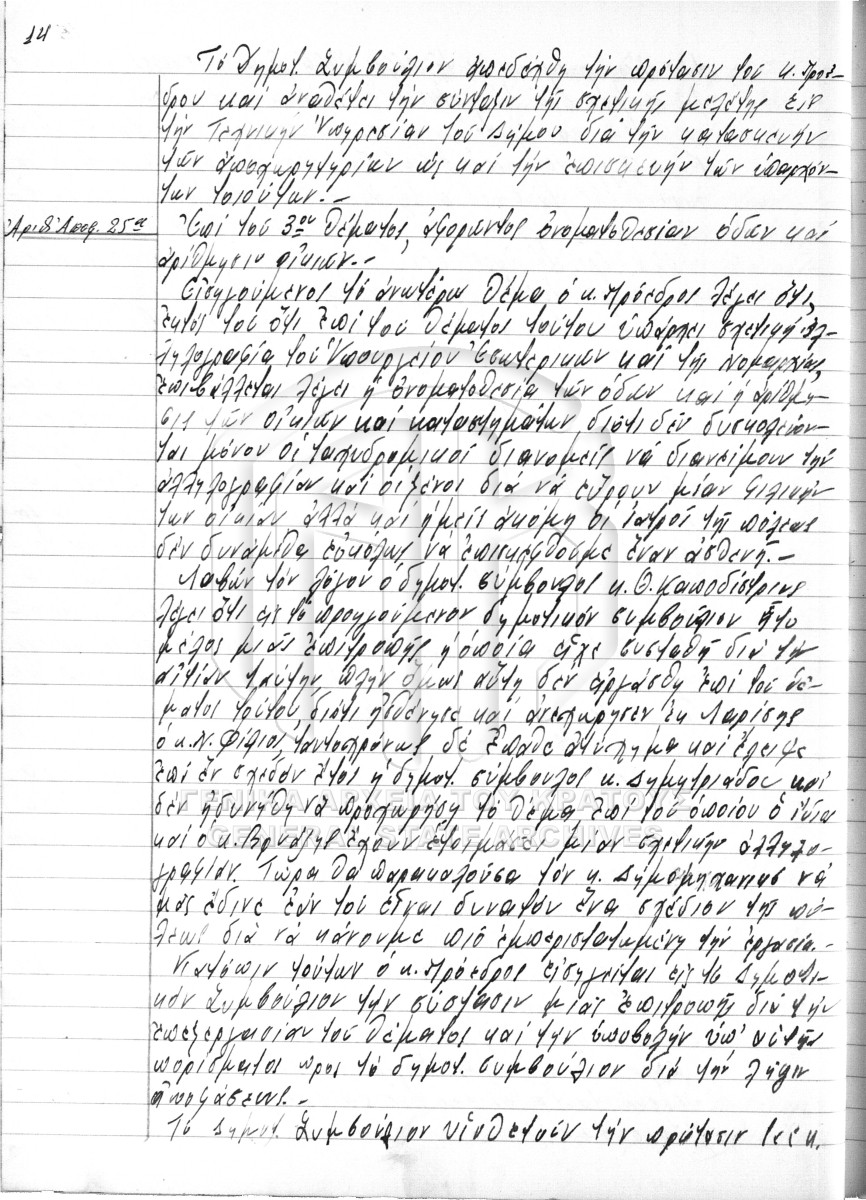 14
Τό Δημοτ. Συμβούλιον ἀπεδέχθη τήν πρότασιν τοῦ κ. Προέ-
δρου καί ἀναθέτει τήν σύνταξιν τῆς σχετικῆς μελέτης εἰς
τήν Τεχνικήν Ὑπηρεσίαν τοῦ Δήμου διά τήν κατασκευήν
τῶν ἀποχωρητηρίων ὡς καί τήν ἐπισκευήν τῶν ὑπαρχόν-
των τοιούτων.-
Ἀριθ. Ἀποφ. 25η
Ἐπί τοῦ 3ου θέματος, ἀφορῶντος ὀνοματοθεσίαν ὁδῶν καί
ἀρίθμησιν οἰκιῶν.-
Εἰσηγούμενος τό ἀνωτέρω θέμα ὁ κ. Πρόεδρος λέγει ὅτι,
ἐκτός τοῦ ὅτι ἐπί τοῦ θέματος τούτου ὑπάρχει σχετική ἀλ-
ληλογραφία τοῦ Ὑπουργείου Ἐσωτερικῶν καί τῆς Νομαρχίας,
ἐπιβάλλεται λέγει ἡ ὀνοματοθεσία τῶν ὁδῶν καί ἡ ἀρίθμη-
σις τῶν οἰκιῶν καί καταστημάτων, διότι δέν δυσκολεύον-
ται μόνον οἱ ταχυδρομικοί διανομεῖς νά διανείμουν τήν
ἀλληλογραφίαν καί οἱ ξένοι διά νά εὕρουν μίαν
των οἰκίαν ἀλλά καί ἡμεῖς ἀκόμη οἱ ἰατροί τῆς πόλεως
δέν δυνάμεθα εὐκόλως νά ἐπισκεφθοῦμε ἕναν ἀσθενῆ.-
Λαβών τόν λόγον ὁ δημοτ. σύμβουλος κ. Θ. Καποδίστριας
λέγει ὅτι εἰς τό προηγούμενον δημοτικόν συμβούλιον ἦτο
μέλος μιᾶς ἐπιτροπῆς ἡ ὁποία εἶχε συσταθῆ διά τήν
αἰτίαν ταύτην πλήν ὅμως αὕτη δέν εἰργάσθη ἐπί τοῦ θέ-
ματος τούτου διότι ἠσθένησε καί ἀνεχώρησεν ἐκ Λαρίσης
ὁ κ. Ν. ταυτοχρόνως δέ ἔπαθε ἀτύχημα καί ἔλειψε
ἐπί ἕν σχεδόν ἔτος ἡ δημοτ. σύμβουλος κ. Δημητριάδου καί
δέν ἠδυνήθη νά προχωρήση τό θέμα ἐπί τοῦ ὁποίου ὁ ἴδιος
καί ὁ κ. ἔχουν ἑτοιμάσει μίαν σχετικήν ἀλληλο-
γραφίαν. Τώρα θά παρακαλοῦσα τόν κ. νά
μᾶς ἔδινε ἐάν τοῦ εἶναι δυνατόν ἕνα σχέδιον τῆς πό-
λεως διά νά κάνουμε πιό ἐμπεριστατωμένη τήν ἐργασία.-
Κατόπιν τούτων ὁ κ. Πρόεδρος εἰσηγεῖται εἰς τό Δημοτι-
κόν Συμβούλιον τήν σύστασιν μιᾶς ἐπιτροπῆς διά τήν
ἐπεξεργασίαν τοῦ θέματος καί τήν ὑποβολήν ὑπ' αὐτῆς
πορίσματος πρός τό δημοτ. συμβούλιον διά τήν λῆψιν
ἀποφάσεως.-
Τό Δημοτ. Συμβούλιον υἱοθετοῦν τήν πρότασιν τοῦ κ.
ΓΕΝΙΚΑ ΑΡΧΕΙΑ ΤΟΥ ΚΡΑΤΟΥΣ
GENERAL STATE ARCHIVES